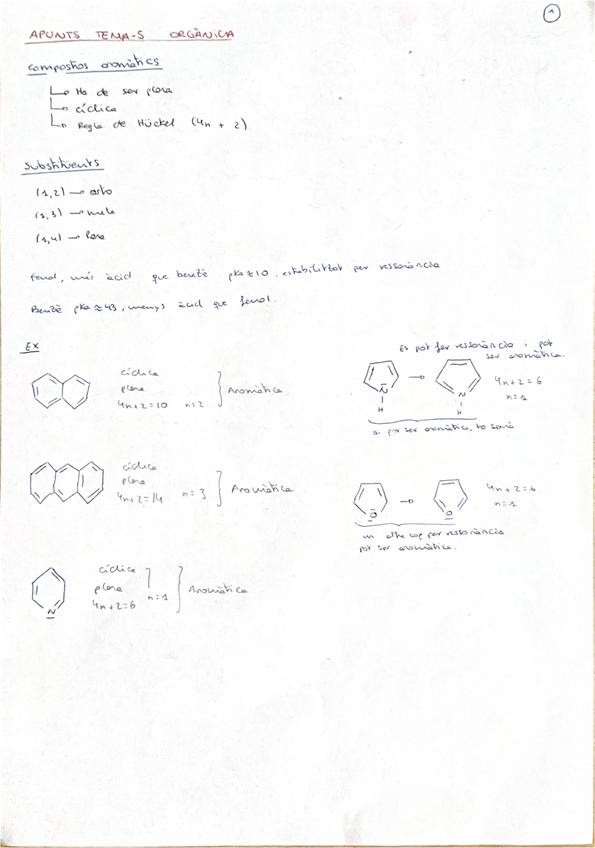 1
APUNTS TEMA-5 ORGÀNICA
Compostos aromàtics
Ha de ser plana
cíclica
Regla de Hückel (4n + 2)
Substituents
(1,2) → orto
(1,3) → meta
(1,4) → para
Fenol, més àcid que benzè pka ≈ 10, estabilitzat per ressonància
Benzè pka ≈ 43, menys àcid que fenol.
EX
cíclica
plana
4n+2=10 n=2
Aromàtica
cíclica
plana
4n+2=14 n=3
Aromàtica
cíclica
plana
4n+2=6 n=1
Aromàtica
N
Es pot fer ressonància i pot
ser aromàtica.
N
H
N
H
4n+2=6
n=1
si pot ser aromàtica, ho serà
O
O
4n+2=6
n=1
un altre cop per ressonància
pot ser aromàtica.